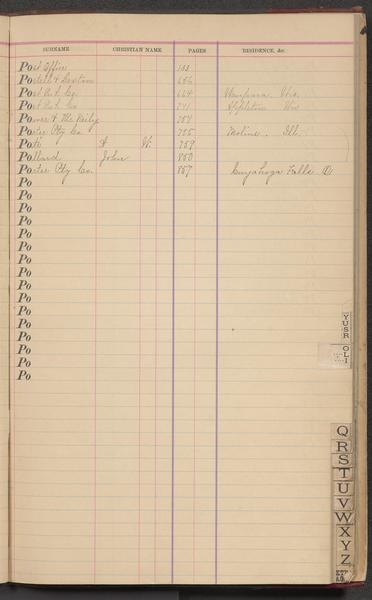 SURNAME CHRISTIAN NAME PAGES RESIDENCE, &c.
Post Office 103
Postell & 656
Post Art. Co. 664 Waupaca, Wis.
Post Art. Co. 711 Appleton Wis
Power & 754
Porter Pty Co 755 Moline. Ill.
Po W. 759
Pollard John 850
Porter Pty Co. 857 Cuyahoga Falls O
Po
Po
Po
Po
Po
Po
Po
Po
Po
Po
Po
Po
Po
Po
Po
Po
YUSR
OLI
Q
R
S
T
U
V
W
X
Y
Z